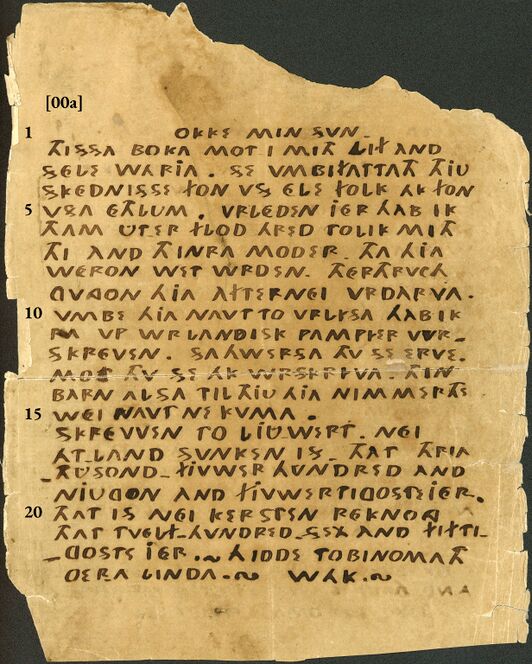 [00a]
1 OKKE MIN SVN.
THISSA BOKA MOT I MITH LIF AND
SELE WARJA. SE VMBIFATTATH THJU
SKEDNISSE FON VS ELE FOLK AK FON
5 VSA ETHLUM. VRLEDEN JER HAB IK
THAM UTER FLOD HRED TOLIK MITH
THI AND THINRA MODER. THA HIA
WERON WET WRDEN. THERTHRVCH
GVNGON HIA AFTERNEI VRDARVA.
10 VMBE HIA NAVT TO VRLYSA HAB IK
RA VP WRLANDISK PAMPJER WR-
SKREVEN. SAHWERSA THV SE ERVE.
MOST THV SE AK WRSKRIVA. THIN
BARN ALSA TIL THJU HIA NIMMERTHE
15 WEI NAVT NE KVMA.
SKREVVEN TO LJUWERT. NEI
ATLAND SVNKEN IS. THAT THRIA
THVSOND. FJVWER HVNDRED AND
NJUGON AND FJVWERTIGOSTE JER.
20 THAT IS NEI KERSTEN REKNONG
THAT TVELF. HVNDRED. SEX AND FIFTI-
GOSTE JER. ~ HIDDE TOBINOMATH
OERA LINDA. ~ WAK. ~